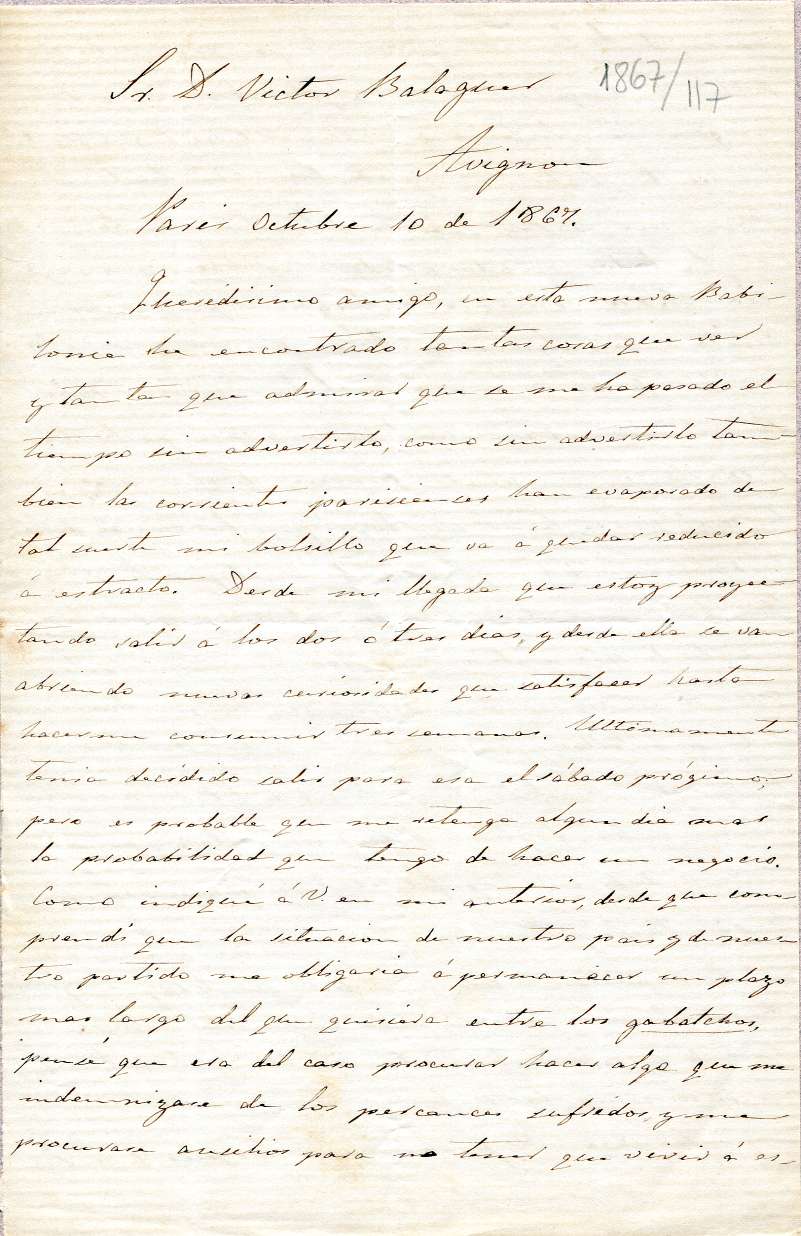 Sr. D. Victor Balaguer
1867/117
Avignon
Paris Octubre 10 de 1867.
Queridisimo amigo, en esta nueva Babi-
lonia he encontrado tantas cosas que ver
y tanta que admirar que se me ha pasado el
tiempo sin advertirlo, como sin advertirlo tam-
bien las corrientes parisienses han evaporado de
tal suerte mi bolsillo que va á quedar reducido
á estracto. Desde mi llegada que estoy proyec-
tando salir á los dos ó tres dias, y desde ella se van
abriendo nuevas curiosidades que satisfacer hasta
hacerme consumir tres semanas. Ultimamente
tenia decidido salir para esa el sábado prógimo,
pero es probable que me retenga algun dia mas
la probabilidad que tengo de hacer un negocio.
Como indiqué á V. en mi anterior, desde que com-
prendí que la situacion de nuestro pais y de nues-
tro partido me obligaria á permanecer un plazo
mas largo del que quisiera entre los gabatchos,
pensé que era del caso procurar hacer algo que me
indemnizase de los percances sufridos, y me
procurase ausilios para no tener que vivir á es-